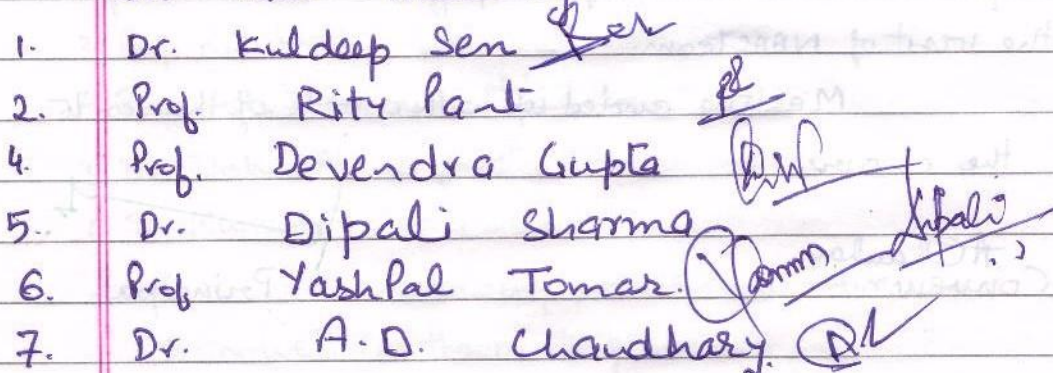 1. Dr. Kuldeep Sen
2. Prof. Ritu Pant
4. Prof. Devendra Gupta
5. Dr. Dipali Sharma
6. Prof. YashPal Tomar. Dipali
7. Dr. A.D. Chaudhary.